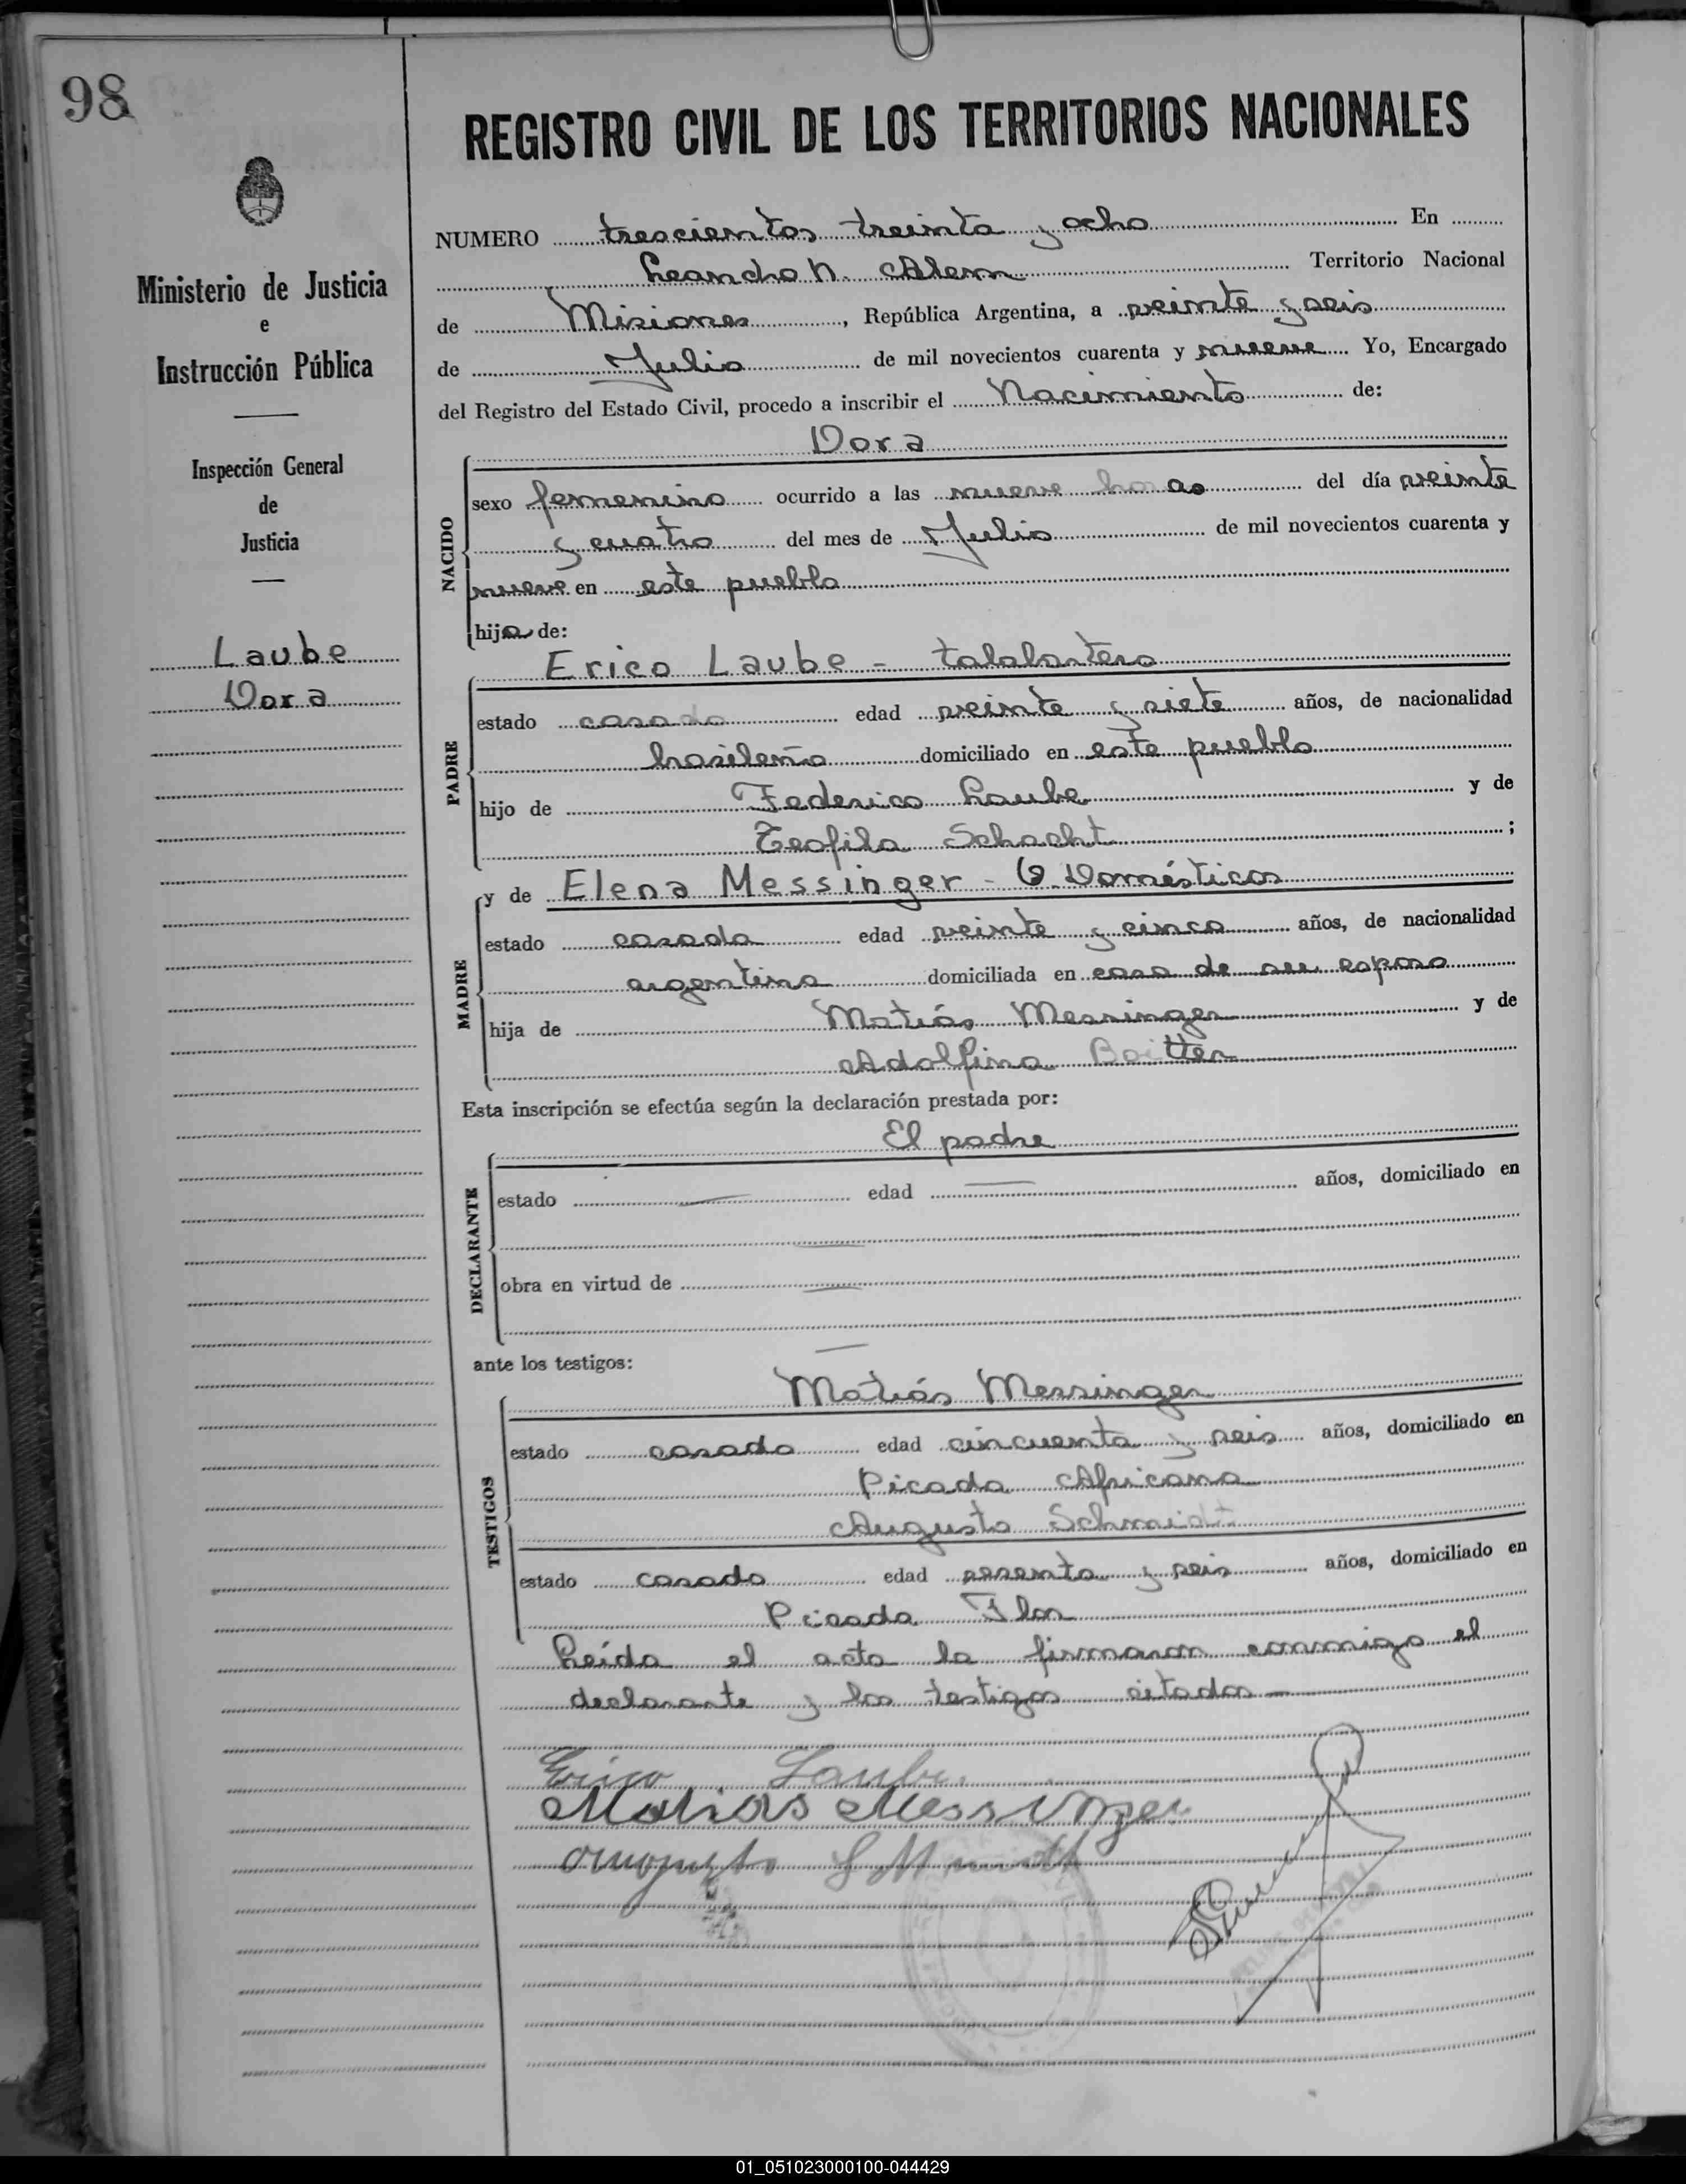 98
REGISTRO CIVIL DE LOS TERRITORIOS NACIONALES
Ministerio de Justicia
e
Instrucción Pública
Inspección General
de
Justicia
Laube
Dora
NUMERO trescientos treinta y ocho En
Leandro N. Alem Territorio Nacional
de Misiones, República Argentina, a veinte y seis
de Julio de mil novecientos cuarenta y nueve Yo, Encargado
del Registro del Estado Civil, procedo a inscribir el Nacimiento de:
Dora
NACIDO
sexo femenino ocurrido a las nueve horas del día veinte
y cuatro del mes de Julio de mil novecientos cuarenta y
nueve en este pueblo
hija de:
Erico Laube - talabartero
PADRE
estado casado edad veinte y siete años, de nacionalidad
brasileño domiciliado en este pueblo
hijo de Federico Laube y de
Teofila Schacht ;
y de Elena Messinger - Q. Domésticos
MADRE
estado casada edad veinte y cinco años, de nacionalidad
argentina domiciliada en casa de su esposo
hija de Matiás Messinger y de
Adolfina Boitter
Esta inscripción se efectúa según la declaración prestada por:
El padre
DECLARANTE
estado edad años, domiciliado en
obra en virtud de
ante los testigos:
Matiás Messinger
TESTIGOS
estado casado edad cincuenta y seis años, domiciliado en
Picada Africana
Augusto Schmidt
estado casado edad sesenta y seis años, domiciliado en
Picada Flor
Leída el acta la firmaron conmigo el
declarante y los testigos citados —
Erico Laube.
Matias Messinger
01_051023000100-044429